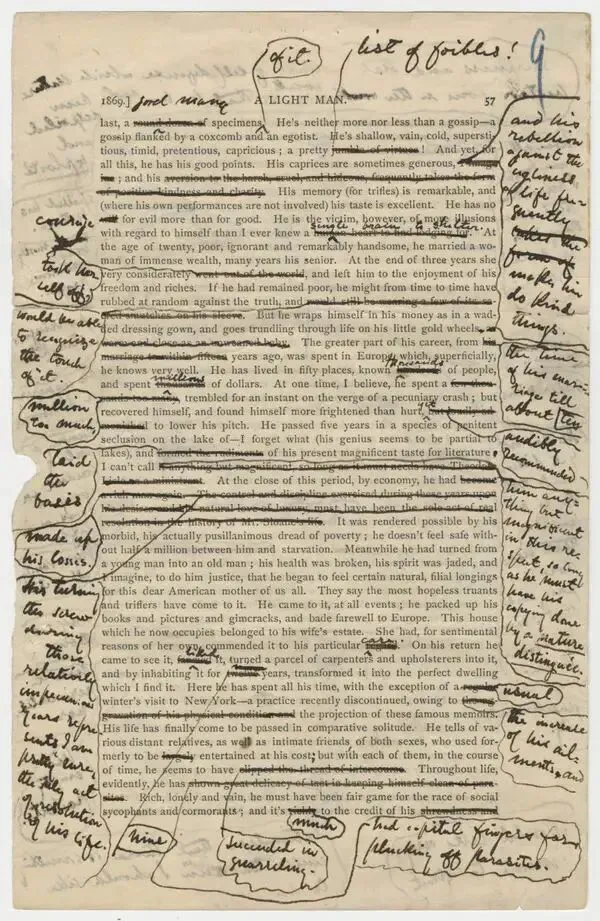 of it.
list of foibles!
9
1869.] good many A LIGHT MAN. 57
last, a round dozen of specimens. He's neither more nor less than a gossip—a
gossip flanked by a coxcomb and an egotist. He's shallow, vain, cold, supersti-
tious, timid, pretentious, capricious; a pretty jumble of virtues! And yet, for
all this, he has his good points. His caprices are sometimes generous,
; and his aversion to the harsh, cruel, and hideous, frequently takes the form
of positive kindness and charity. His memory (for trifles) is remarkable, and
(where his own performances are not involved) his taste is excellent. He has no
for evil more than for good. He is the victim, however, of more illusions
single brain to shelter.
with regard to himself than I ever knew a human heart to find lodging for. At
the age of twenty, poor, ignorant and remarkably handsome, he married a wo-
man of immense wealth, many years his senior. At the end of three years she
very considerately went out of the world, and left him to the enjoyment of his
freedom and riches. If he had remained poor, he might from time to time have
rubbed at random against the truth, and would still be wearing a few of its
smutches on his sleeve. But he wraps himself in his money as in a wad-
ded dressing gown, and goes trundling through life on his little gold wheels,
The greater part of his career, from his
marriage to within fifteen years ago, was spent in Europe, which, superficially,
thousands
he knows very well. He has lived in fifty places, known of people,
millions
and spent of dollars. At one time, I believe, he spent a
trembled for an instant on the verge of a pecuniary crash; but
yet
recovered himself, and found himself more frightened than hurt,
to lower his pitch. He passed five years in a species of penitent
seclusion on the lake of—I forget what (his genius seems to be partial to
lakes), and formed the rudiments of his present magnificent taste for literature
I can't call it anything but magnificent, so long as it must needs have Theodore
Lisle as a ministrant. At the close of this period, by economy, he had become
rich men again. The control and discipline exercised during these years upon
his desires and his natural love of luxury, must have been the sole act of real
resolution in the history of Mr. Sloane's life. It was rendered possible by his
morbid, his actually pusillanimous dread of poverty; he doesn't feel safe with-
out half a million between him and starvation. Meanwhile he had turned from
a young man into an old man; his health was broken, his spirit was jaded, and
I imagine, to do him justice, that he began to feel certain natural, filial longings
for this dear American mother of us all. They say the most hopeless truants
and triflers have come to it. He came to it, at all events; he packed up his
books and pictures and gimcracks, and bade farewell to Europe. This house
which he now occupies belonged to his wife's estate. She had, for sentimental
care
reasons of her own commended it to his particular . On his return he
liked
came to see it, it, turned a parcel of carpenters and upholsterers into it,
and by inhabiting it for years, transformed it into the perfect dwelling
which I find. Here he has spent all his time, with the exception of a regular
winter's visit to New York—a practice recently discontinued, owing to
of his physical condition and the projection of these famous memoirs.
His life has finally come to be passed in comparative solitude. He tells of va-
rious distant relatives, as well as intimate friends of both sexes, who used for-
merly to be largely entertained at his cost; but with each of them, in the course
of time, he seems to have slipped the thread of intercourse. Throughout life,
evidently, he has shown great delicacy of tact in keeping himself clean of para-
sites. Rich, lonely and vain, he must have been fair game for the race of social
sycophants and cormorants; and it's to the credit of his shrewdness and
much
courage
took her
self off
would be able
to recognize
the touch
of it.
million
too much,
laid
the
bases
made up
his losses.
His turning
the screw
during
those
relatively
impecunious
years repre-
sents I am
pretty sure,
the only act
of resolution
of his life.
nine
succeeded in
quarreling.
had capital fingers for
plucking off parasites.
and his
rebellion
against the
ugliness
of life fre-
quently
takes the
form of
makes him
do kind
things.
the time
of his marri-
age till
about ten
audibly
recommended
him any-
thing but
magnificent
in this re-
spect, so long
as he must
have his
copying done
by a nature
distinguée.
usual
the increase
of his ail-
ments, and